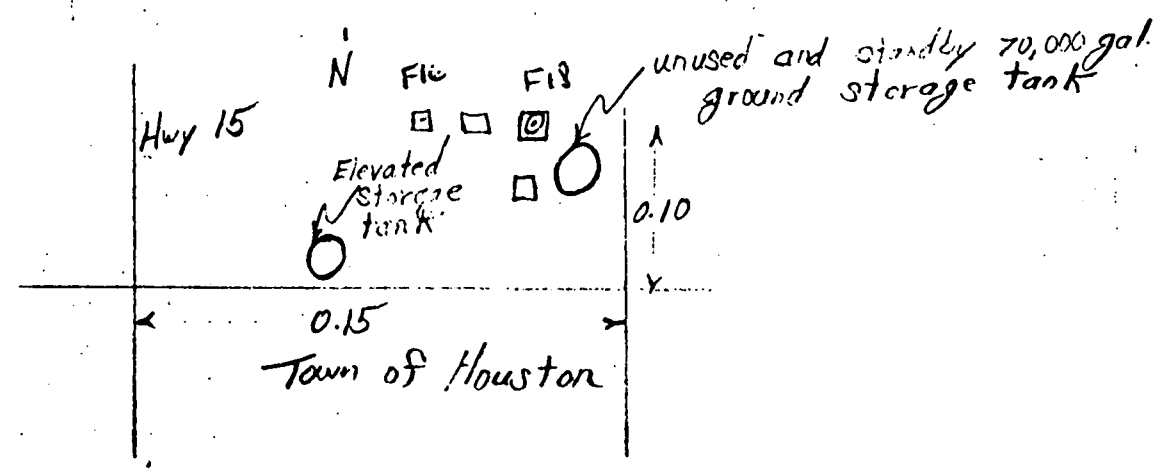 N
F18
unused and standby 70,000 gal.
ground storage tank
Hwy 15
Elevated
Storage
tank
0.10
0.15
Town of Houston